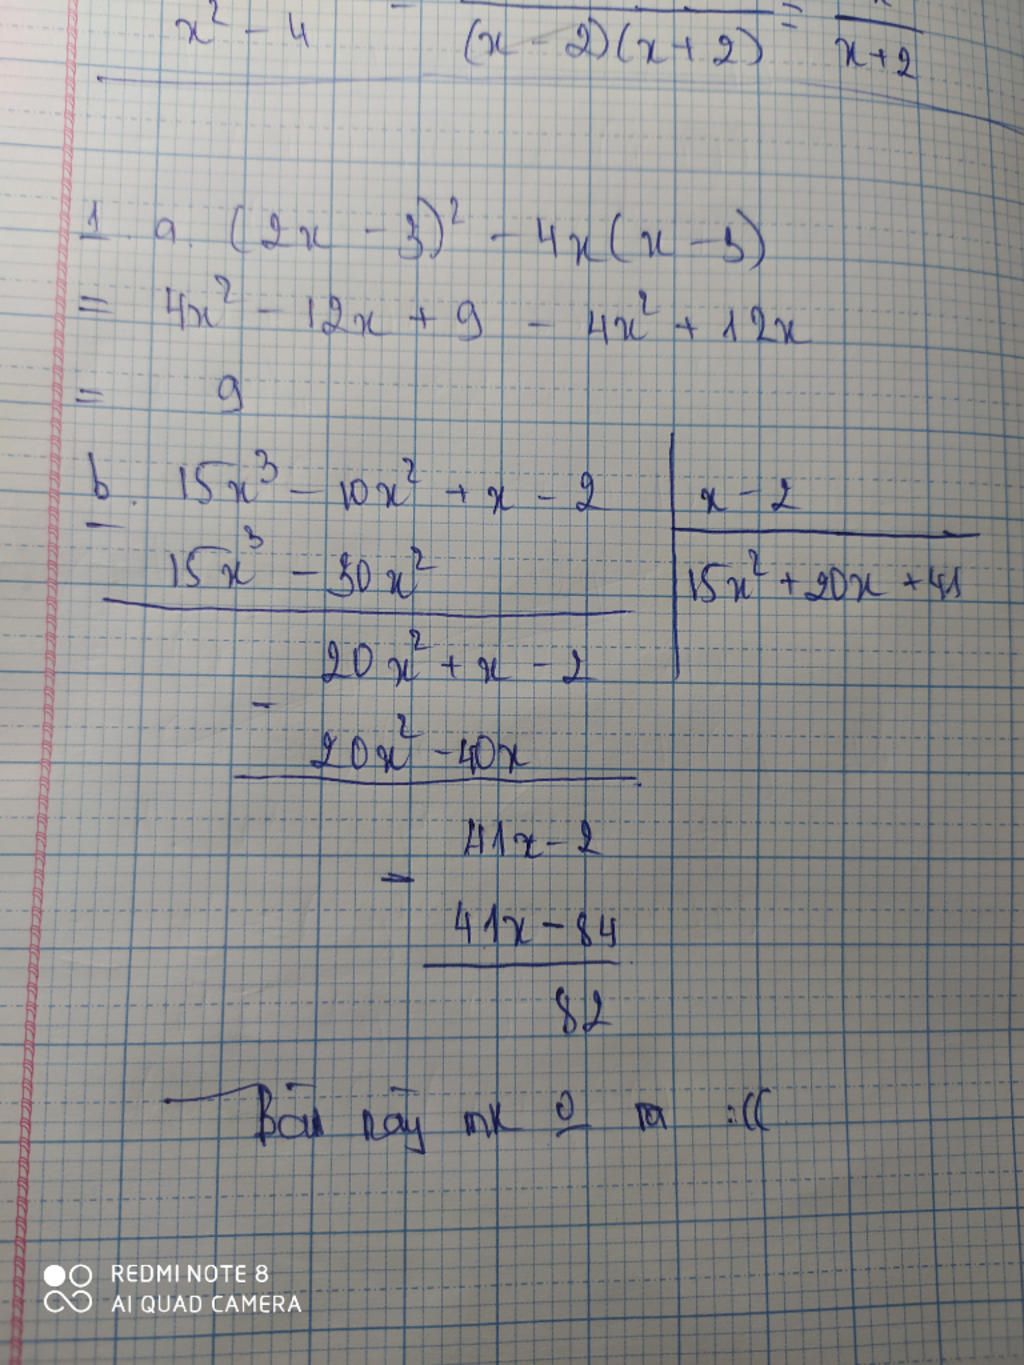 x² - 4 (x - 2)(x + 2) = x+2
1 a. (2x - 3)² - 4x(x - 3)
= 4x² - 12x + 9 - 4x² + 12x
= 9
b. 15x³ - 10x² + x - 2 x - 2
15x³ - 30x² 15x² + 20x + 41
20x² + x - 2
-
20x² - 40x
41x - 2
-
41x - 84
82
Bài này mk 0 ra :((
REDMI NOTE 8
AI QUAD CAMERA